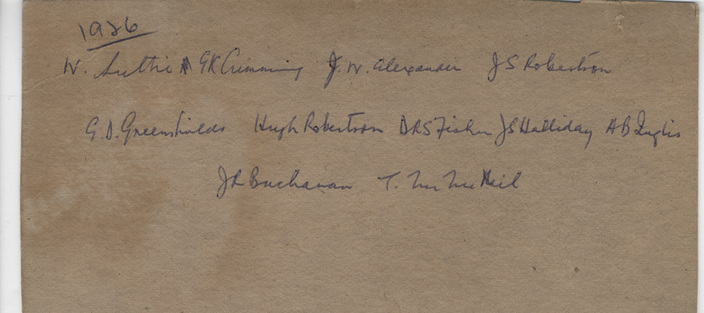 1926
W. Guthrie GK Cumming J. W. Alexander J S Robertson
G. D. Greenshields Hugh Robertson DRS Fisher JS Halliday AB Inglis
JR Buchanan T. McNeil